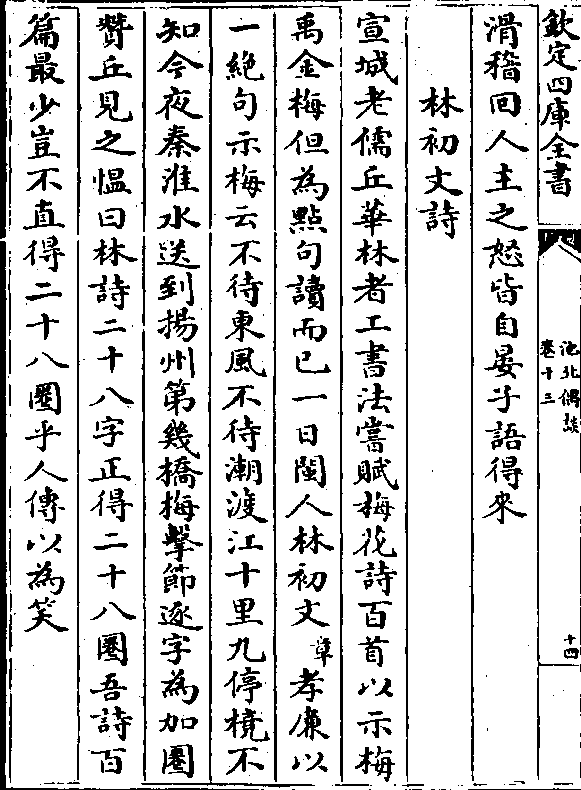 欽定四庫全書
池北偶談
卷十三
十四
滑稽回人主之怒皆自晏子語得來
林初文詩
宣城老儒丘華林者工書法嘗賦梅花詩百首以示梅
禹金梅但為點句讀而已一日閩人林初文章孝廉以
一絶句示梅云不待東風不待潮渡江十里九停橈不
知今夜秦淮水送到揚州第幾橋梅擊節逐字為加圈
贊丘見之愠曰林詩二十八字正得二十八圈吾詩百
篇最少豈不直得二十八圈乎人傳以為笑